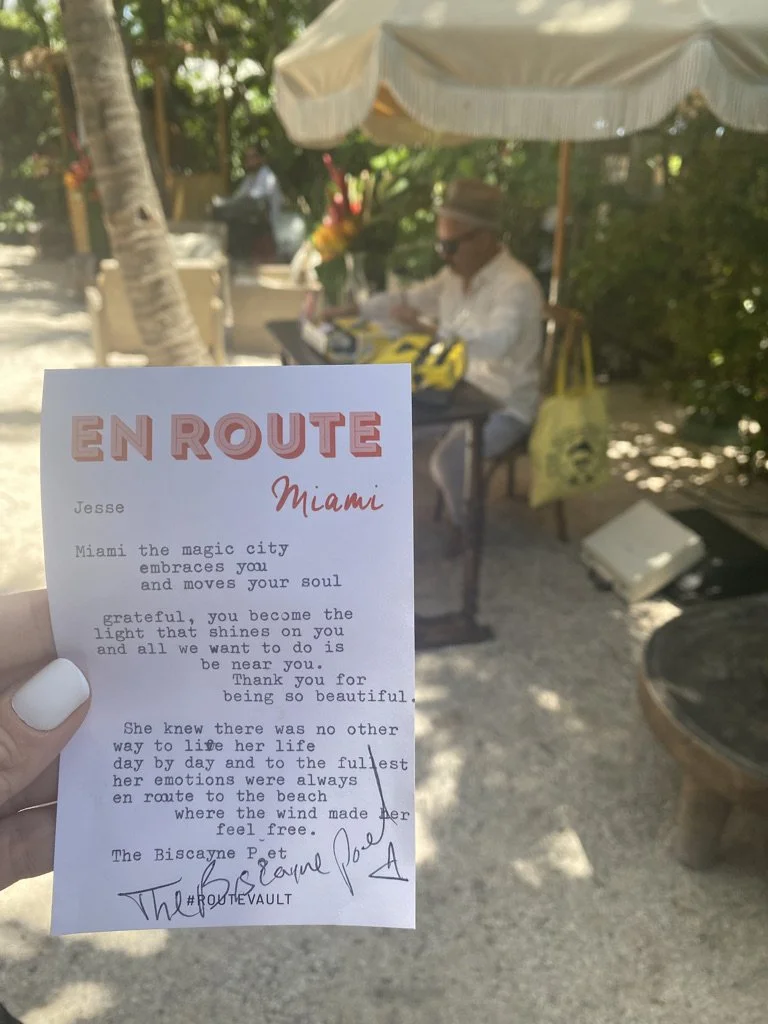 EN ROUTE
Miami
Jesse
Miami the magic city
embraces you
and moves your soul
grateful, you become the
light that shines on you
and all we want to do is
be near you.
Thank you for
being so beautiful.
She knew there was no other
way to live her life
day by day and to the fullest
her emotions were always
en route to the beach
where the wind made her
feel free.
The Biscayne P et
The Biscayne Poet
#ROUTEVAULT